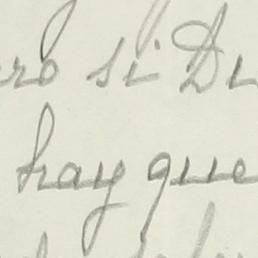 ro si Du
hay que